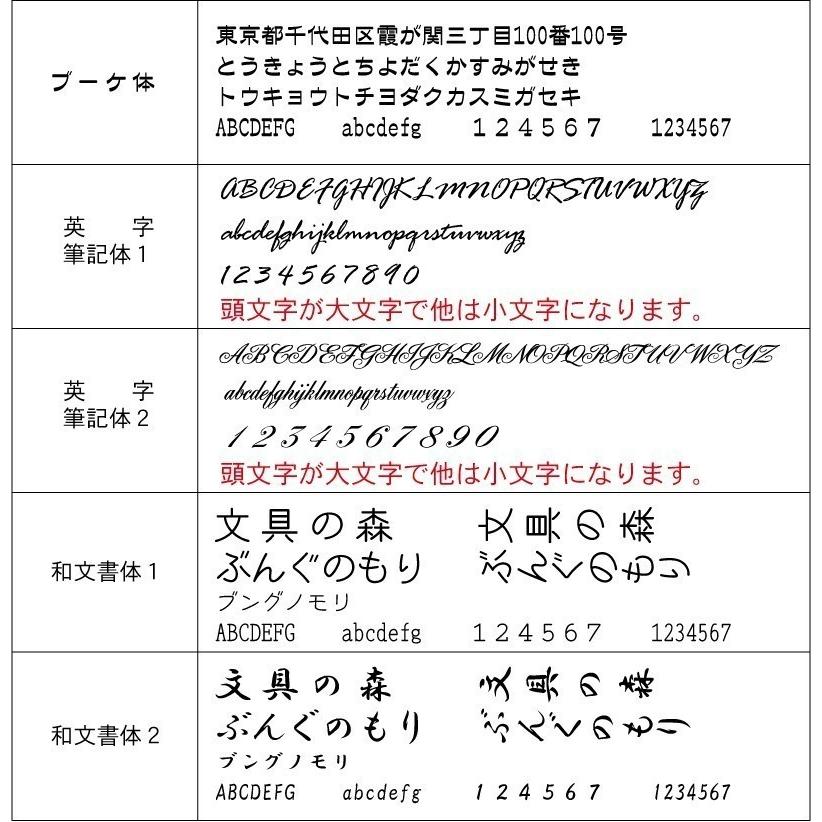 ブーケ体
東京都千代田区霞が関三丁目100番100号
とうきょうとちよだくかすみがせき
トウキョウトチヨダクカスミガセキ
ABCDEFG abcdefg １２４５６７ 1234567
英字
筆記体１
ABCDEFGHIJKLMNOPQRSTUVWXYZ
abcdefghijklmnopqrstuvwxyz
1234567890
頭文字が大文字で他は小文字になります。
英字
筆記体２
ABCDEFGHIJKLMNOPQRSTUVWXYZ
abcdefghijklmnopqrstuvwxyz
1234567890
頭文字が大文字で他は小文字になります。
和文書体１
文具の森 文具の森
ぶんぐのもり ぶんぐのもり
ブングノモリ
ABCDEFG abcdefg １２４５６７ 1234567
和文書体２
文具の森 文具の森
ぶんぐのもり ぶんぐのもり
ブングノモリ
ABCDEFG abcdefg １２４５６７ 1234567